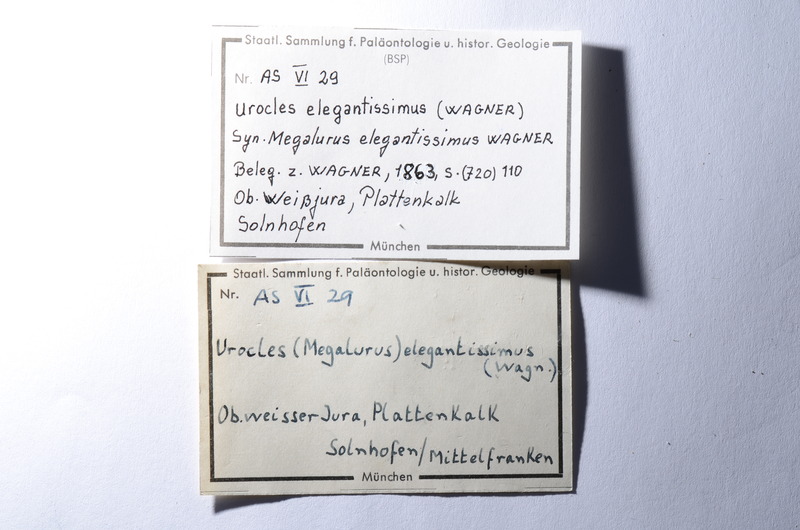 Staatl. Sammlung f. Paläontologie u. histor. Geologie
(BSP)
Nr. AS VI 29
Urocles elegantissimus (WAGNER)
Syn. Megalurus elegantissimus WAGNER
Beleg. z. WAGNER, 1863, S. (720) 110
Ob. Weißjura, Plattenkalk
Solnhofen
München
Staatl. Sammlung f. Paläontologie u. histor. Geologie
Nr. AS VI 29
Urocles (Megalurus) elegantissimus
(Wagn.)
Ob. weisser Jura, Plattenkalk
Solnhofen/Mittelfranken
München